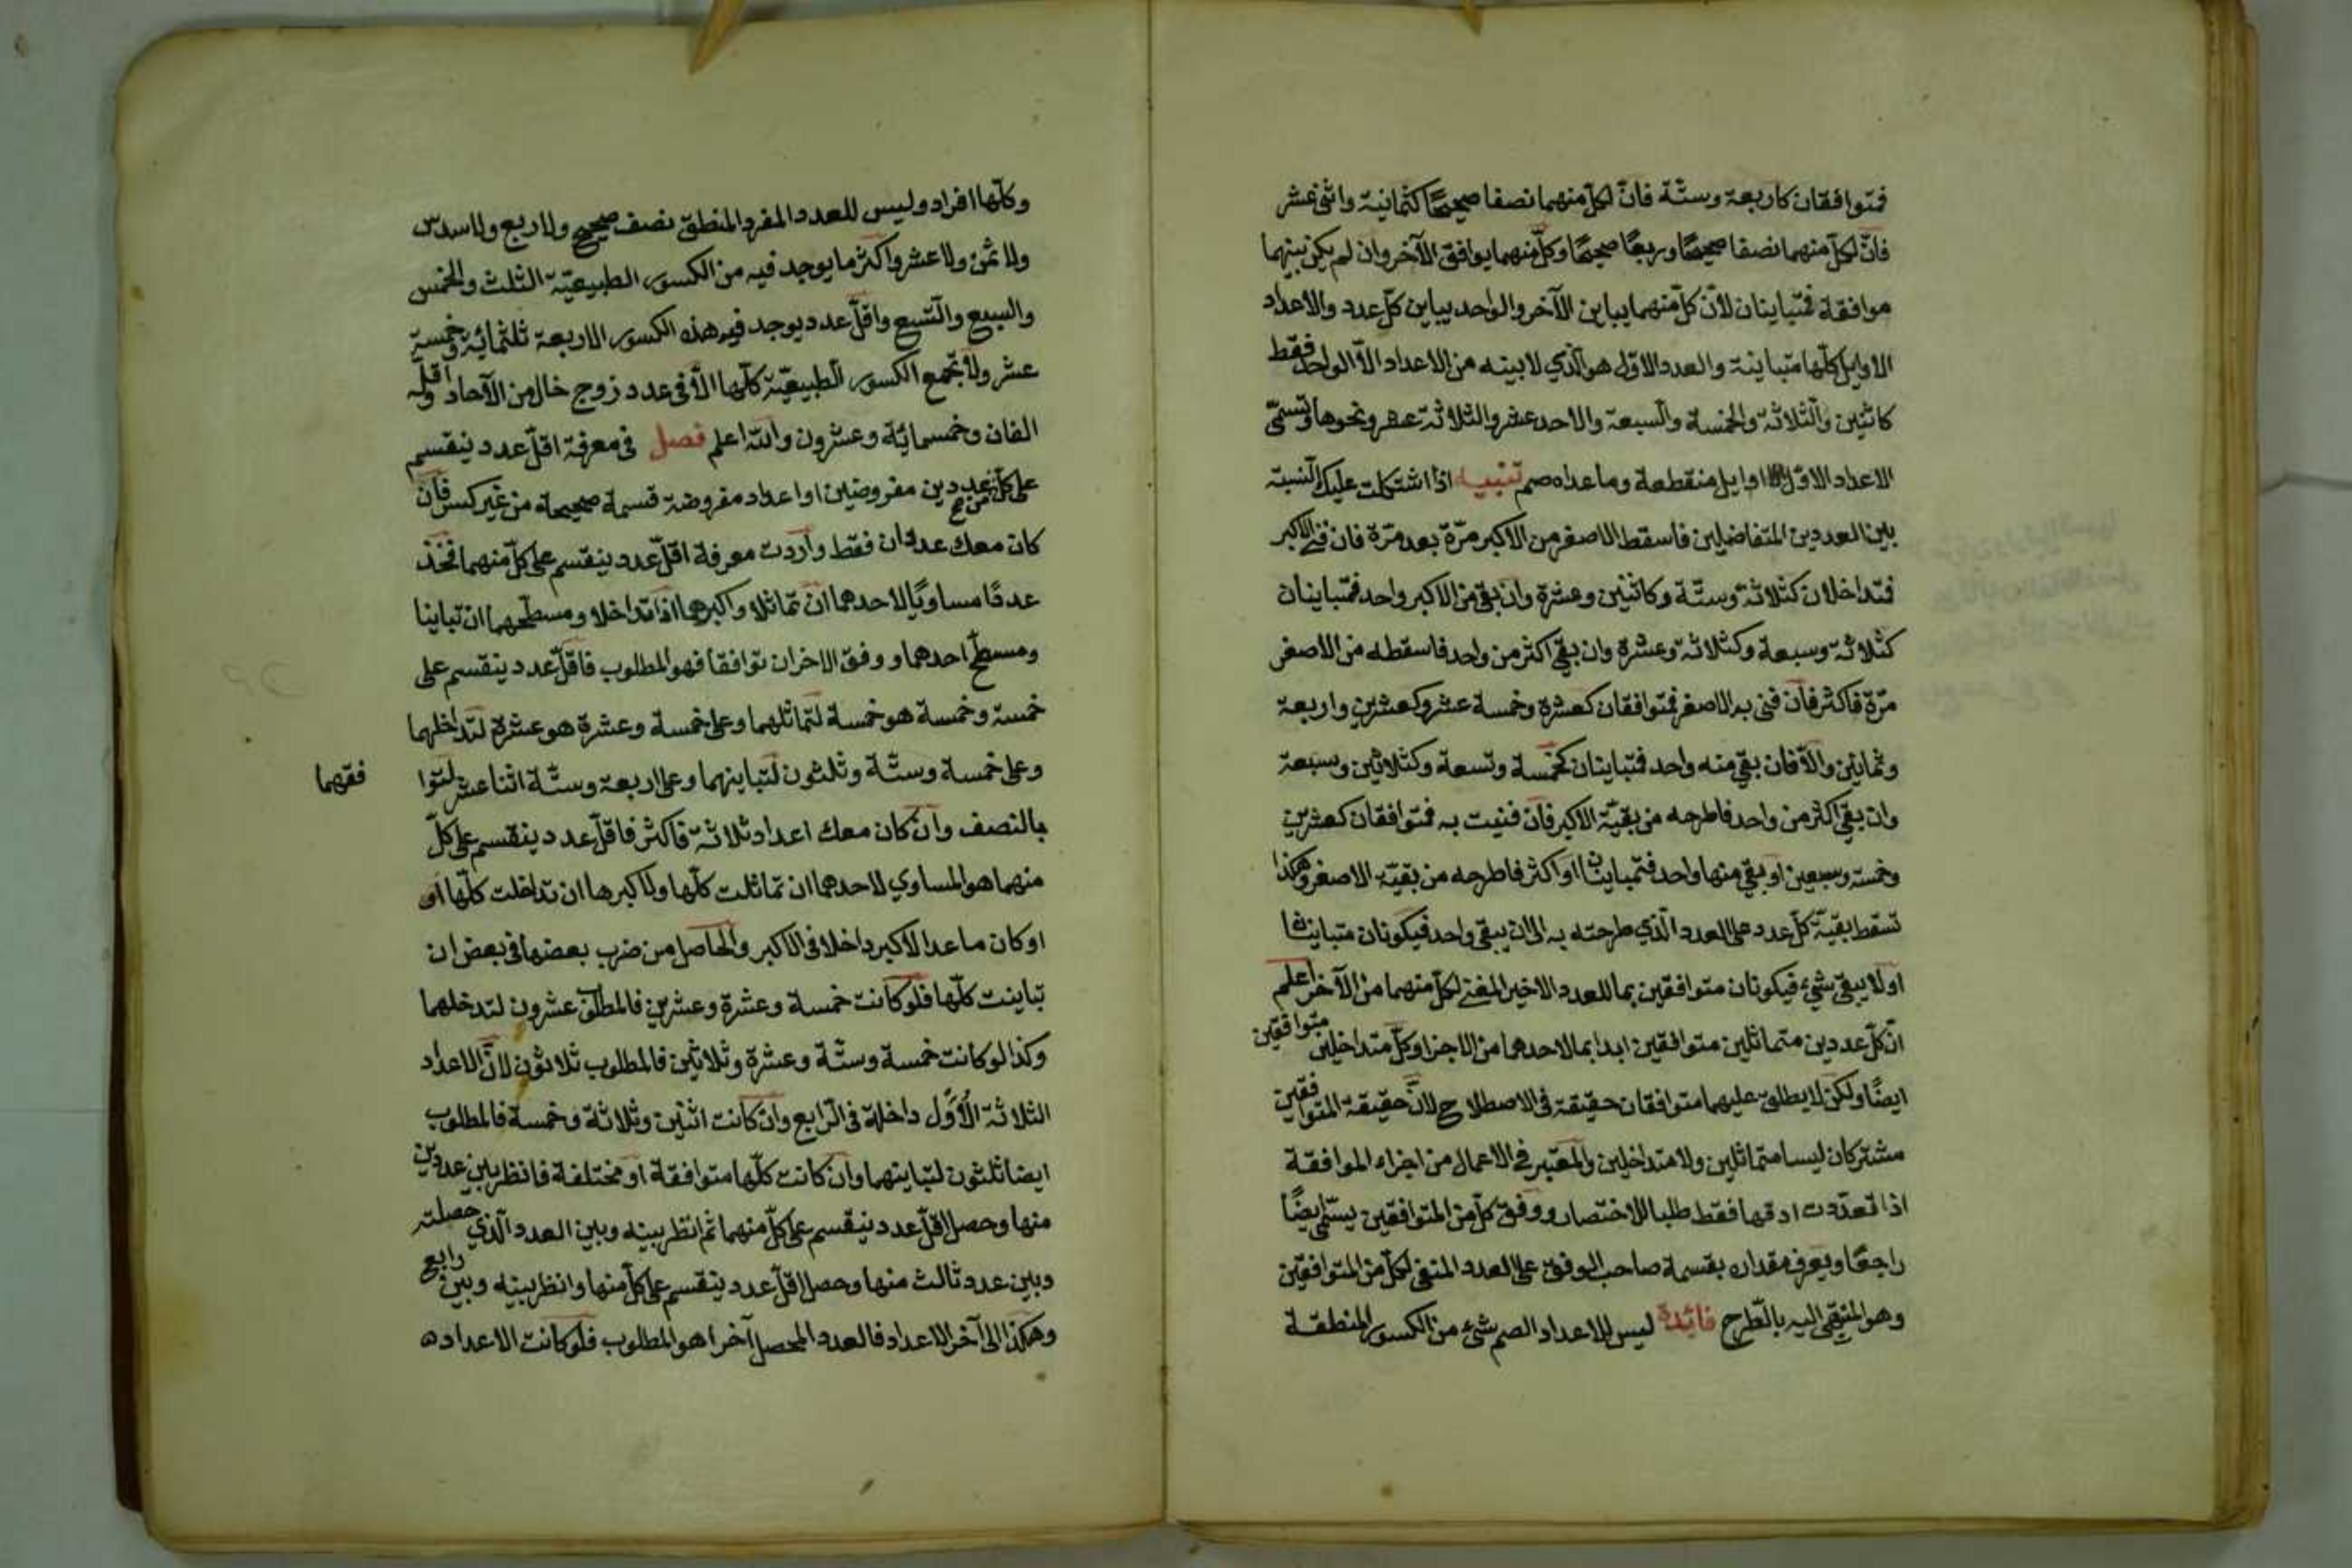 فمتوافقان كاربعة وستّة فانّ لكلّ منهما نصفا صحيحًا كثمانية واثنى عشر
فانّ لكلّ منهما نصفا صحيحًا وربعًا صحيحًا وكلّ منهما يوافق الآخر وان لم يكن بينهما
موافقة فمتباينان لانّ كلّ منهما يباين الآخر والواحد يباين كلّ عدد والاعداد
الاوايل كلّها متباينة والعدد الاوّل هو الّذي لا يبنه من الاعداد الّا الواحد فقط
كاثنين والثلاثة والخمسة والسبعة والاحد عشر والثلاثة عشر ونحوها وتسمّى
الاعداد الاوّل اوايل منقطعة وما عداه صم تنبيه اذا اشتكلت عليك النسبة
بين العددين المتفاضلين فاسقط الاصغر من الاكبر مرّة بعد مرّة فان فنى الاكبر
فمتداخلان كثلاثة وستّة وكاثنين وعشرة وان بقى من الاكبر واحد فمتباينان
كثلاثة وسبعة وكثلاثة وعشرة وان بقى اكثر من واحد فاسقطه من الاصغر
مرّة فاكثر فان فنى به الاصغر فمتوافقان كعشرة وخمسة عشر وكعشرين واربعة
وثمانين والّا فان بقى منه واحد فمتباينان كخمسة وتسعة وكثلاثين وسبعة
وان بقى اكثر من واحد فاطرحه من بقيّة الاكبر فان فنيت به فمتوافقان كعشرين
وخمسة وسبعين او بقى منها واحد فمتباينان او اكثر فاطرحه من بقيّة الاصغر وهكذا
تسقط بقيّة كلّ عدد على العدد الّذي طرحته به الى ان يبقى واحد فيكونان متباينان
او لا يبقى شيء فيكونان متوافقين بما للعدد الاخير المفنى لكلّ منهما من الآخر اعلم
انّ كلّ عددين متماثلين متوافقين ابدا بما لاحدهما من الاجزا وكلّ متداخلين متوافقين
ايضًا ولكن لا يطلق عليهما متوافقان حقيقة فى الاصطلاح لانّ حقيقة المتوافقين
مشتركان ليسا متماثلين ولا متداخلين والمعتبر فى الاعمال من اجزاء الموافقة
اذا تعدّدت ادقها فقط طلبا للاختصار ووفق كلّ من المتوافقين يسمّى ايضًا
راجعًا ويعرف مقداره بقسمة صاحب الوفق على العدد المفنى لكلّ من المتوافقين
وهو المنتهى اليه بالطّرح فائدة ليس للاعداد الصم شيء من الكسور المنطقة
وكلّها افراد وليس للعدد المفرد المنطق نصف صحيح ولا ربع ولا سدس
ولا ثمن ولا عشر واكثر ما يوجد فيه من الكسور الطبيعيّة الثلث والخمس
والسبع والتّسع واقلّ عدد يوجد فيه هذه الكسور الاربعة ثلثمائة وخمسة
عشر ولا تجتمع الكسور الطبيعيّة كلّها الّا فى عدد زوج خال من الآحاد واقلّه
الفان وخمسمائة وعشرون والله اعلم فصل فى معرفة اقلّ عدد ينقسم
على كلّ من عددين مفروضين او اعداد مفروضة قسمة صحيحة من غير كسر فان
كان معك عددان فقط واردت معرفة اقلّ عدد ينقسم على كلّ منهما فخذ
عددًا مساويًا لاحدهما ان تماثلا واكبرهما اذا تداخلا ومسطّحهما ان تباينا
ومسطّح احدهما ووفق الاخر ان توافقا فهو المطلوب فاقلّ عدد ينقسم على
خمسة وخمسة هو خمسة لتماثلهما وعلى خمسة وعشرة هو عشرة لتداخلهما
وعلى خمسة وستّة وثلثون لتباينهما وعلى اربعة وستّة اثنا عشر لتوا
فقهما
بالنصف وان كان معك اعداد ثلاثة فاكثر فاقلّ عدد ينقسم على كلّ
منهما هو المساوي لاحدهما ان تماثلت كلّها ولاكبرها ان تداخلت كلّها او
او كان ما عدا الاكبر داخلا فى الاكبر والحاصل من ضرب بعضها فى بعض ان
تباينت كلّها فلو كانت خمسة وعشرة وعشرين فالمطلوب عشرون لتدخلهما
وكذا لو كانت خمسة وستّة وعشرة وثلاثين فالمطلوب ثلاثون لانّ الاعداد
الثلاثة الاُوَل داخلة فى الرّابع وان كانت اثنين وثلاثة وخمسة فالمطلوب
ايضا ثلثون لتباينهما وان كانت كلّها متوافقة او مختلفة فانظر بين عددين
منها وحصل اقلّ عدد ينقسم على كلّ منهما ثم انظر بينه وبين العدد الّذي حصلته
وبين عدد ثالث منها وحصل اقلّ عدد ينقسم على كلّ منها وانظر بينه وبين رابع
وهكذا الى آخر الاعداد فالعدد المحصل آخرا هو المطلوب فلو كانت الاعداد ه